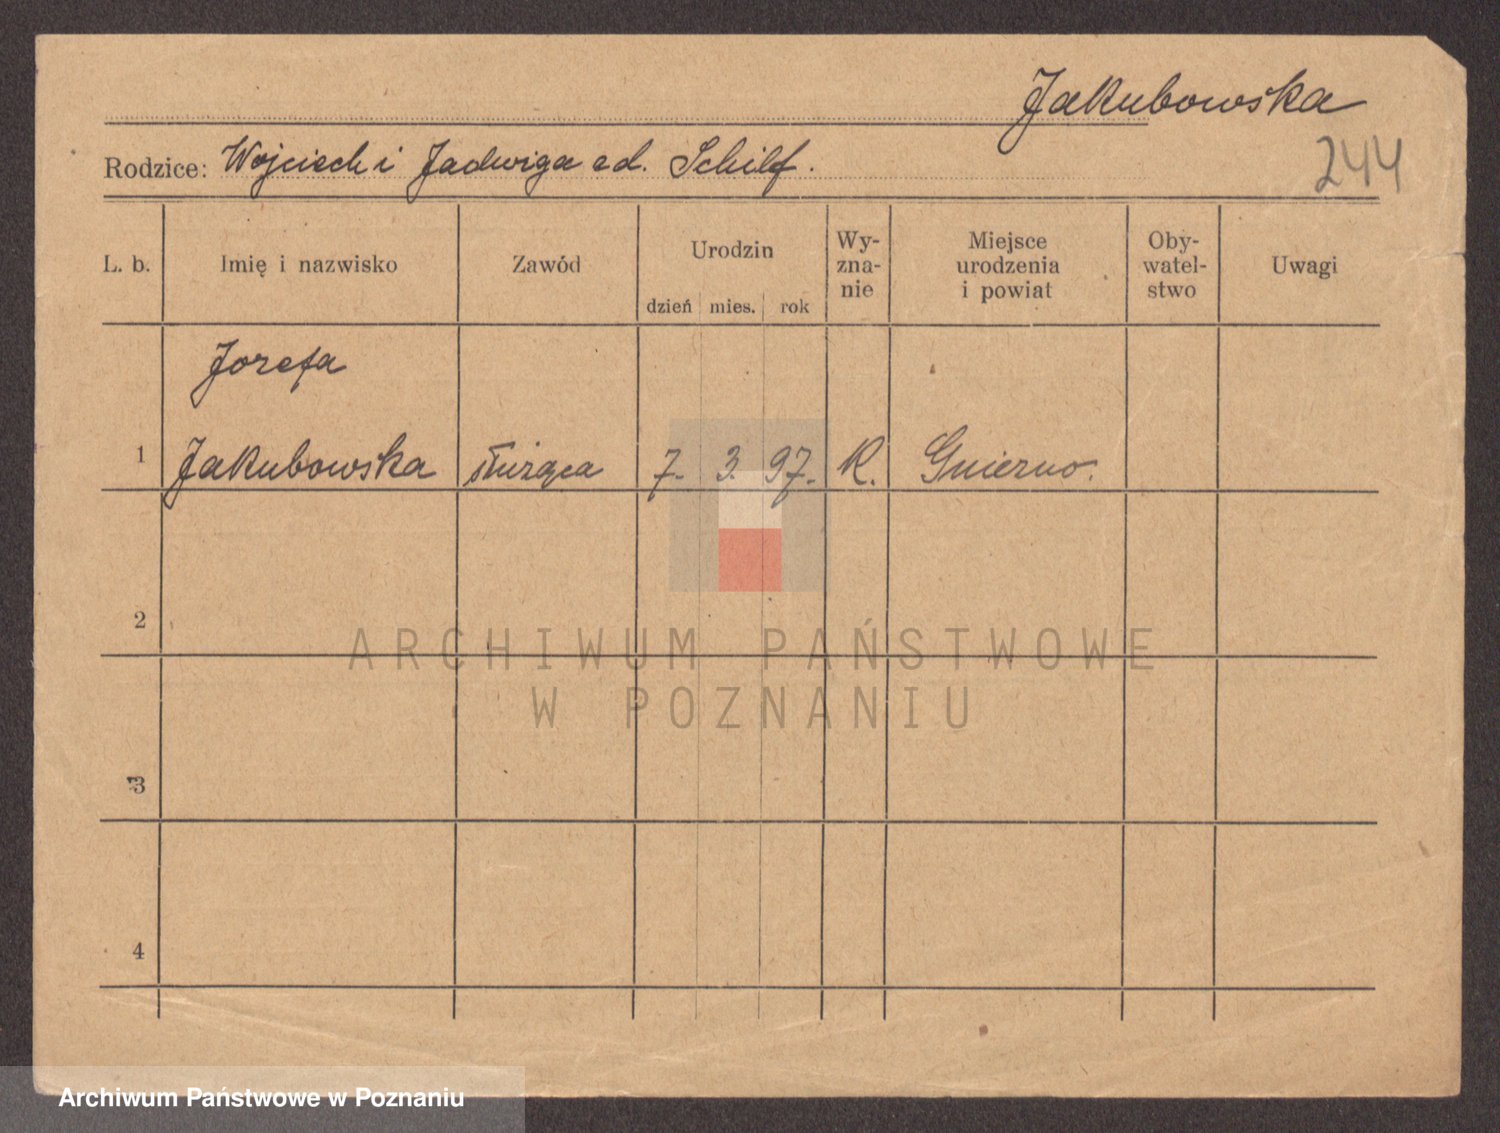 Jakubowska
Rodzice: Wojciech i Jadwiga ed. Schilf.
244
L. b. Imię i nazwisko Zawód Urodzin dzień mies. rok Wy-zna-nie Miejsce urodzenia i powiat Oby-watel-stwo Uwagi
Jozefa
1 Jakubowska służąca 7. 3. 97. K. Gniezno.
2
ARCHIWUM PAŃSTWOWE
W POZNANIU
3
4
Archiwum Państwowe w Poznaniu